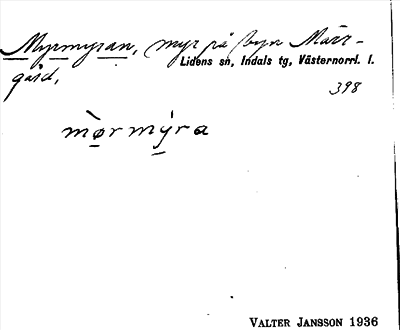 Myrmyran, myr på byn Märr-
Lidens sn, Indals tg, Västernorrl. l.
gård,
398
mø̀rmýra
VALTER JANSSON 1936